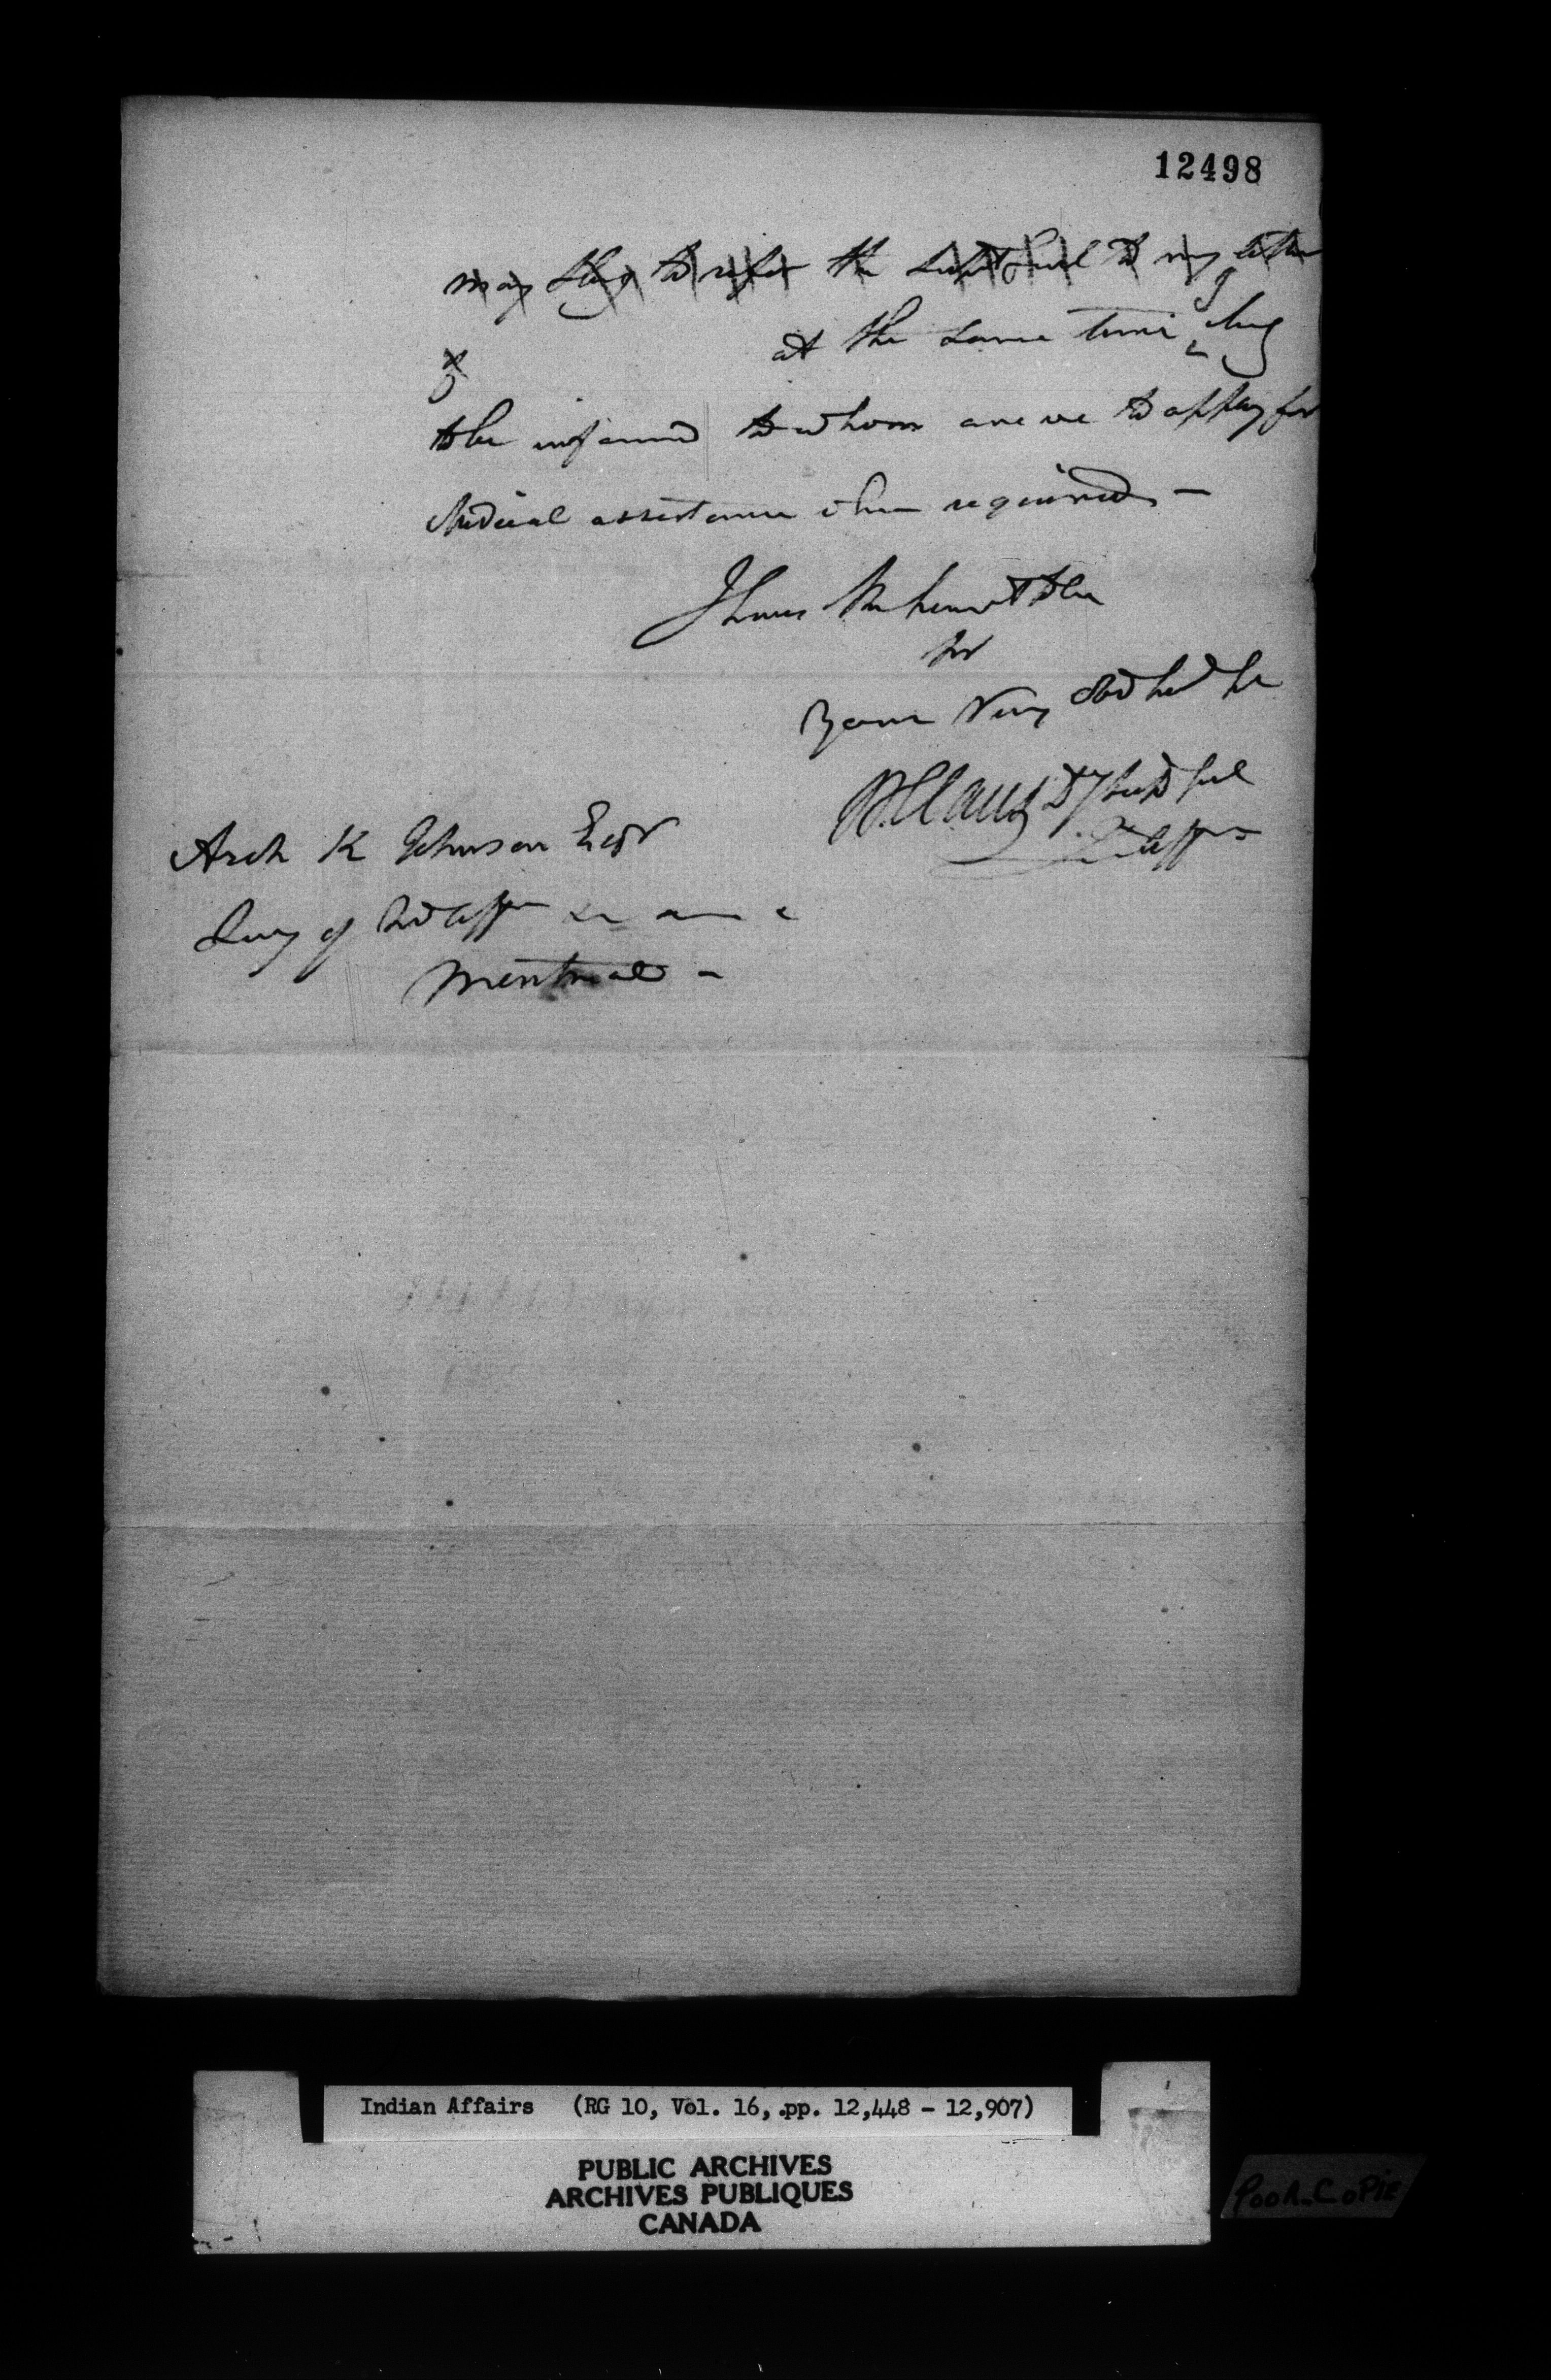 12498
may I beg to refer the Supt Genl to my letter
of at the same time I beg
to be informed to whom are we to apply for
Medical assistance when required –
I have the honor to be
Sir
Your Very Obd hul
W Claus Dy Supt Genl
Ind Affrs
Arch K Johnson Esqr
Secy of Ind Affrs
Montreal –
Indian Affairs (RG 10, Vol. 16, pp. 12,448 - 12,907)
PUBLIC ARCHIVES
ARCHIVES PUBLIQUES
CANADA
POOR COPIE